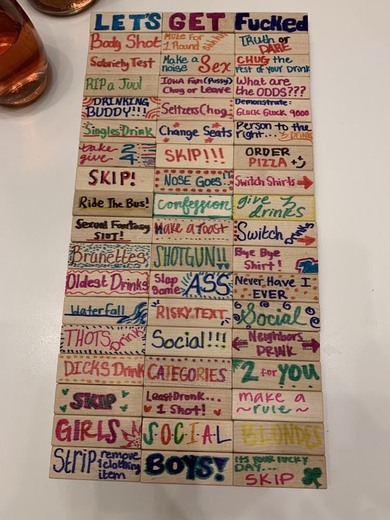 LET'S GET FUCKED
Body Shot
Mute For 1 Round
Truth or DARE
Sobriety Test
Make a Noise Sex
CHUG the rest of your Drink
RIP a Juul
Iowa Fan (Pussy) Chug or Leave
What are the ODDS???
DRINKING BUDDY!!!
Seltzers Chug
Demonstrate: Gluck Gluck 9000
Singles Drink
Change Seats
Person to the right... Drink
take 2 give 4
SKIP!!!
ORDER PIZZA
SKIP!
NOSE GOES..
Switch Shirts
Ride The Bus!
Confession
give 3 drinks
Sexual Fantasy SLUT!
Make a Toast
Switch Drinks
Brunettes
SHOTGUN!!
Bye Bye Shirt!
Oldest Drinks
Slap Some ASS
Never Have I EVER
Waterfall
RISKY TEXT
Social
THOTS Drink
Social!!!
Neighbors DRINK
DICKS Drink
CATEGORIES
2 for YOU
SKIP
Least Drunk... 1 Shot!
make a ~rule~
GIRLS
SOCIAL
BLONDES
Strip remove 1 clothing item
BOYS!
it's your lucky DAY... SKIP